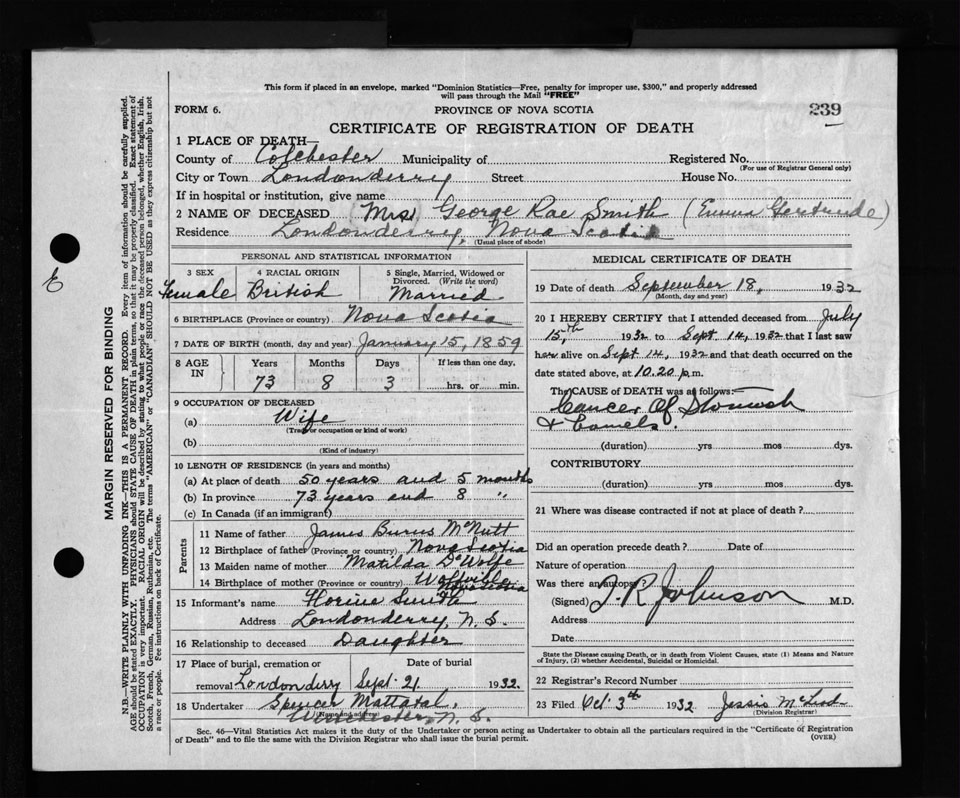 This form if placed in an envelope, marked "Dominion Statistics—Free, penalty for improper use, $300," and properly addressed
will pass through the Mail "FREE"
FORM 6.
PROVINCE OF NOVA SCOTIA
239
CERTIFICATE OF REGISTRATION OF DEATH
1 PLACE OF DEATH—
County of Colchester Municipality of Registered No.
(For use of Registrar General only)
City or Town Londonderry Street House No.
If in hospital or institution, give name
2 NAME OF DECEASED Mrs George Rae Smith (Emma Gertrude)
Residence Londonderry, Nova Scotia
(Usual place of abode)
PERSONAL AND STATISTICAL INFORMATION
3 SEX 4 RACIAL ORIGIN 5 Single, Married, Widowed or
Divorced. (Write the word)
Female British Married
6 BIRTHPLACE (Province or country) Nova Scotia
7 DATE OF BIRTH (month, day and year) January 15, 1859
8 AGE Years Months Days If less than one day.
IN 73 8 3 hrs. or min.
9 OCCUPATION OF DECEASED
(a) Wife
(Trade or occupation or kind of work)
(b)
(Kind of industry)
10 LENGTH OF RESIDENCE (in years and months)
(a) At place of death 50 years and 5 months
(b) In province 73 years and 8 "
(c) In Canada (if an immigrant)
Parents
11 Name of father James Burns McNutt
12 Birthplace of father (Province or country) Nova Scotia
13 Maiden name of mother Matilda DeWolfe
14 Birthplace of mother (Province or country) Wolfville
Nova Scotia
15 Informant's name Florine Smith
Address Londonderry, N. S.
16 Relationship to deceased Daughter
17 Place of burial, cremation or Date of burial
removal Londonderry Sept. 21 1932.
18 Undertaker Spencer Mattatal,
(Name and address)
N. S.
MEDICAL CERTIFICATE OF DEATH
19 Date of death September 18, 1932
(Month, day and year)
20 I HEREBY CERTIFY that I attended deceased from July
15,th 1932 to Sept 14, 1932 that I last saw
her alive on Sept 14, 1932 and that death occurred on
date stated above, at 10.20 p.m.
The CAUSE OF DEATH was as follows:
Cancer Of Stomach
& Bowels.
(duration) yrs mos dys.
CONTRIBUTORY
(duration) yrs mos dys.
21 Where was disease contracted if not at place of death?
Did an operation precede death? Date of
Nature of operation
Was there an autopsy
(Signed) Johnson M.D.
Address
Date
State the Disease causing Death, or in death from Violent Causes, state (1) Means and Nature
of Injury, (2) whether Accidental, Suicidal or Homicidal.
22 Registrar's Record Number
23 Filed Oct. 3th 1932 Jessie McLeod
(Division Registrar)
Sec. 46—Vital Statistics Act makes it the duty of the Undertaker or person acting as Undertaker to obtain all the particulars required in the "Certificate of Registration
of Death" and to file the same with the Division Registrar who shall issue the burial permit.
(OVER)
MARGIN RESERVED FOR BINDING
N.B.—WRITE PLAINLY WITH UNFADING INK—THIS IS A PERMANENT RECORD. Every item of information should be carefully supplied.
AGE should be stated EXACTLY. PHYSICIANS should STATE CAUSE OF DEATH in plain terms, so that it may be properly classified. Exact statement of
OCCUPATION is very important. RACIAL ORIGIN will be described by stating to what people or race the deceased person belonged, whether English, Irish,
Scotch, French, German, Russian, Ruthenian, etc. The terms "AMERICAN" or "CANADIAN" SHOULD NOT BE USED as they express citizenship but not
a race or people. Fee instructions on back of Certificate.